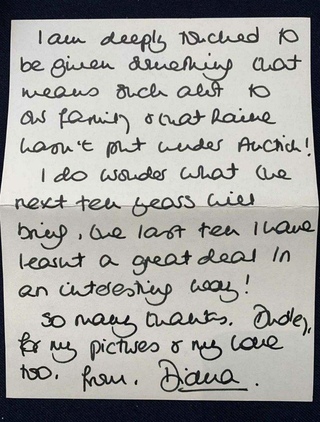 I am deeply touched to
be given something that
means such alot to
our family & that Raine
hasn't put under Auction!
I do wonder what the
next ten years will
bring, the last ten I have
learnt a great deal in
an interesting way!
So many thanks, Dudley,
for my pictures & my love
too. from, Diana.